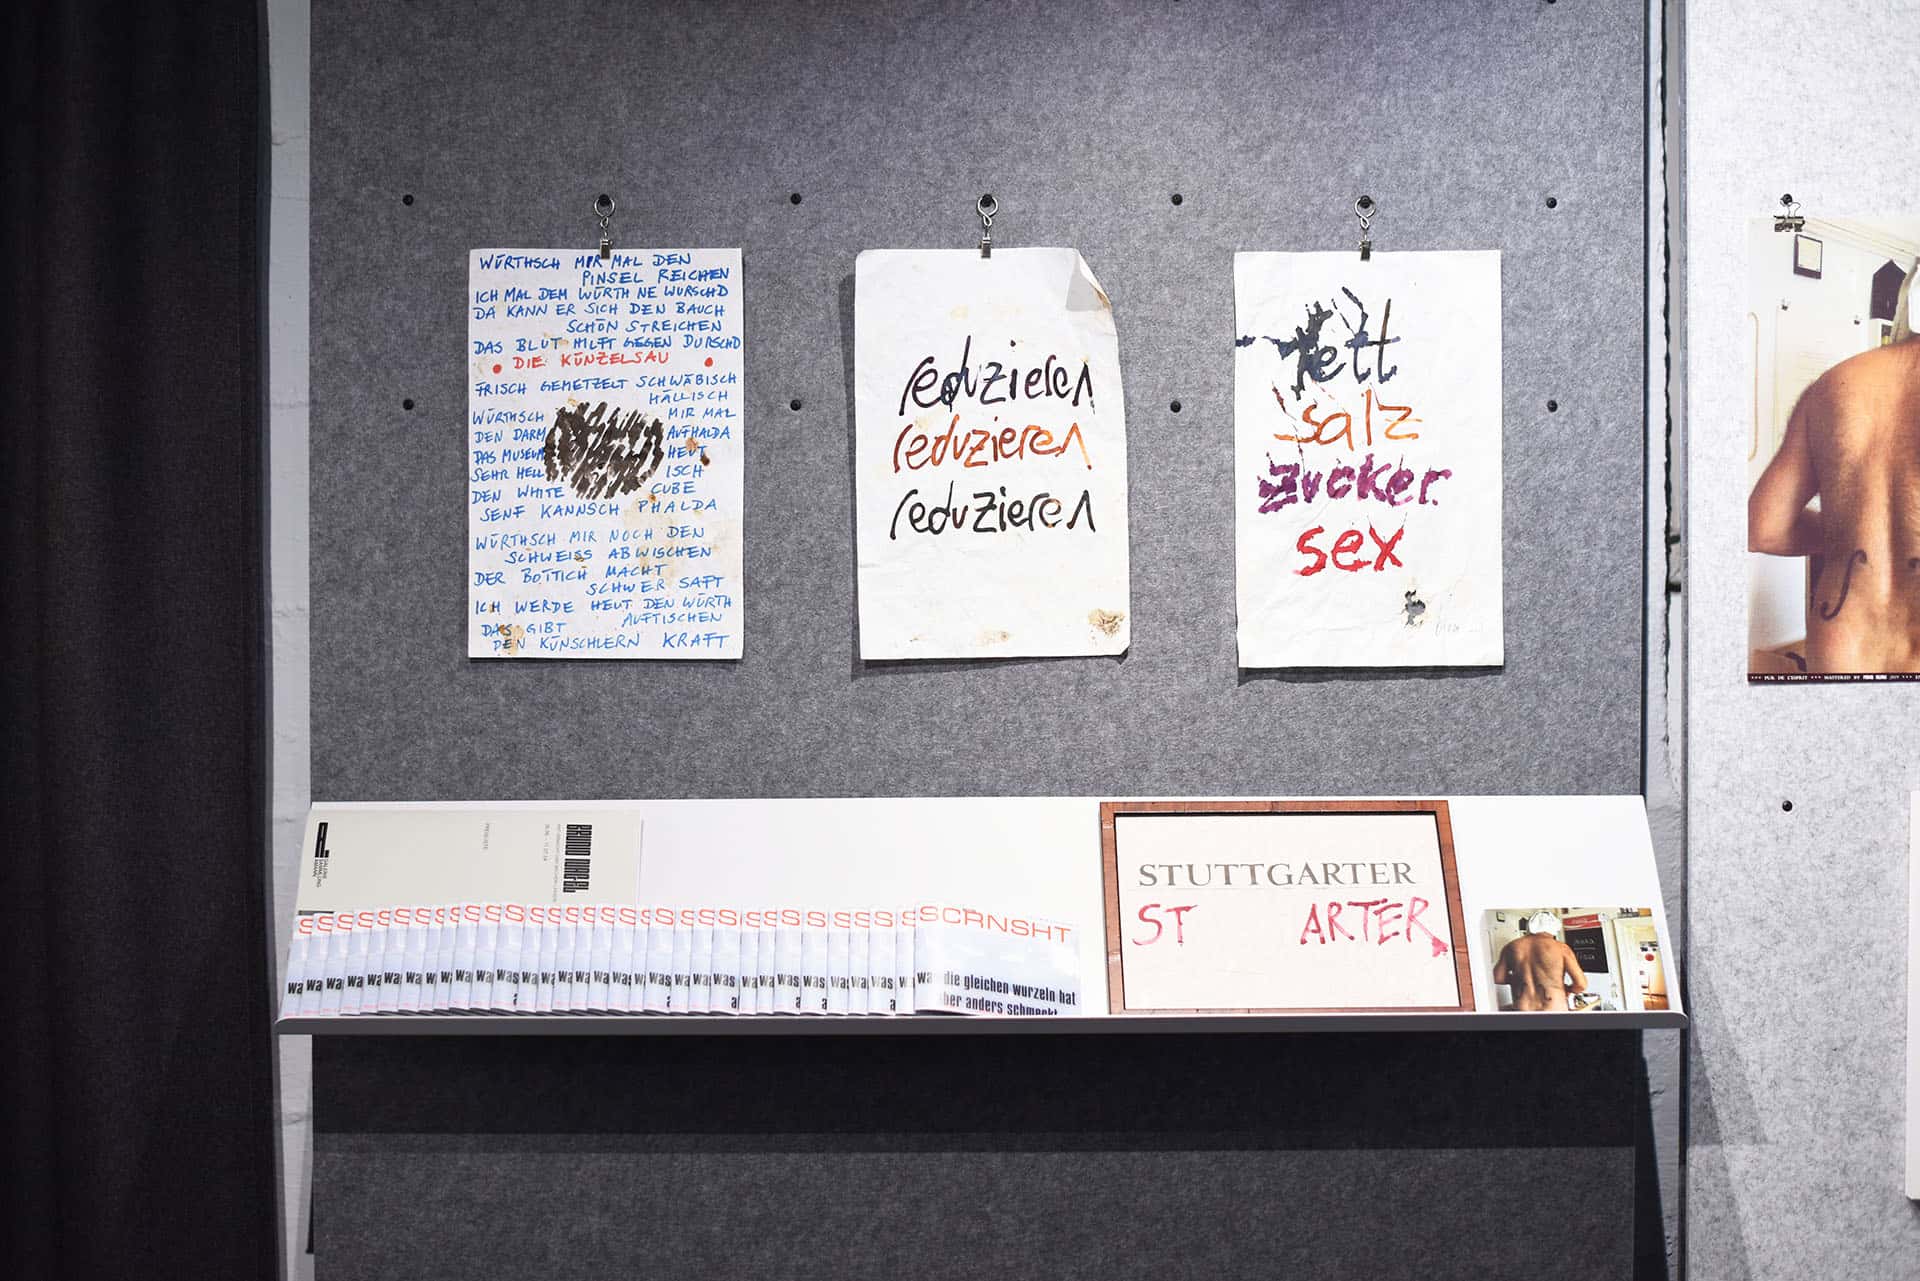 WÜRTHSCH MIR MAL DEN
PINSEL REICHEN
ICH MAL DEM WÜRTH NE WURSCHD
DA KANN ER SICH DEN BAUCH
SCHÖN STREICHEN
DAS BLUT HILFT GEGEN DURSCHD
DIE KÜNZELSAU
FRISCH GEMETZELT SCHWÄBISCH
HÄLLISCH
WÜRTHSCH MIR MAL
DEN DARM AUFHALDA
DAS MUSEUM HEUT
SEHR HELL ISCH
DEN WHITE CUBE
SENF KANNSCH PHALDA
WÜRTHSCH MIR NOCH DEN
SCHWEISS ABWISCHEN
DER BOTTICH MACHT
SCHWER SAFT
ICH WERDE HEUT DEN WÜRTH
AUFTISCHEN
DAS GIBT
DEN KÜNSCHLERN KRAFT
reduzieren
reduzieren
reduzieren
fett
salz
zucker
sex
*** PUR DE L'ESPRIT *** MASTERED BY
PREISLISTE
GALERIE
SAMMLUNG
AMANN
SCRNSHT
was die gleichen wurzeln hat
aber anders schmeckt
STUTTGARTER
ST ARTER